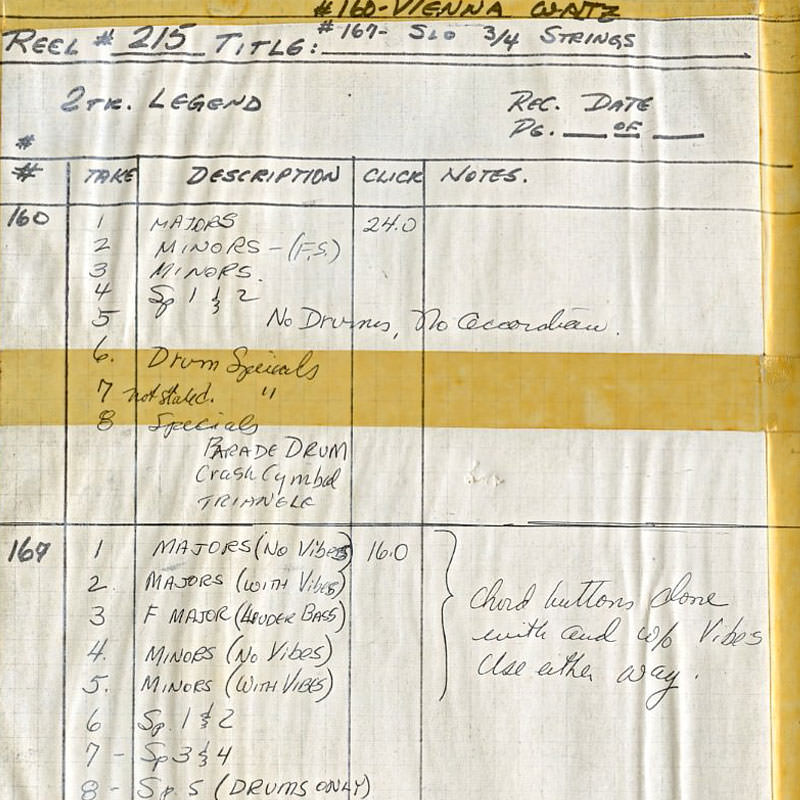 #160-VIENNA WATZ
REEL # 215 TITLE: #167- SLO 3/4 STRINGS
2TK. LEGEND
REC. DATE
PG. ___ OF ___
#
# TAKE DESCRIPTION CLICK NOTES.
160 1 MAJORS 24.0
2 MINORS - (F.S.)
3 MINORS.
4 Sp 1 & 2
5 No Drums, No accordian.
6. Drum Specials
7 not slated. "
8 Specials
PARADE DRUM
Crash Cymbal
TRIANGLE
167 1 MAJORS (No Vibes) 16.0
2. MAJORS (WITH Vibes)
3 F MAJOR (LOUDER BASS)
4. MINORS (No VIBES)
5. MINORS (WITH VIBES)
chord buttons done
with and w/o Vibes
Use either way.
6 Sp. 1 & 2
7 - Sp 3 & 4
8 - Sp. 5 (DRUMS ONLY)